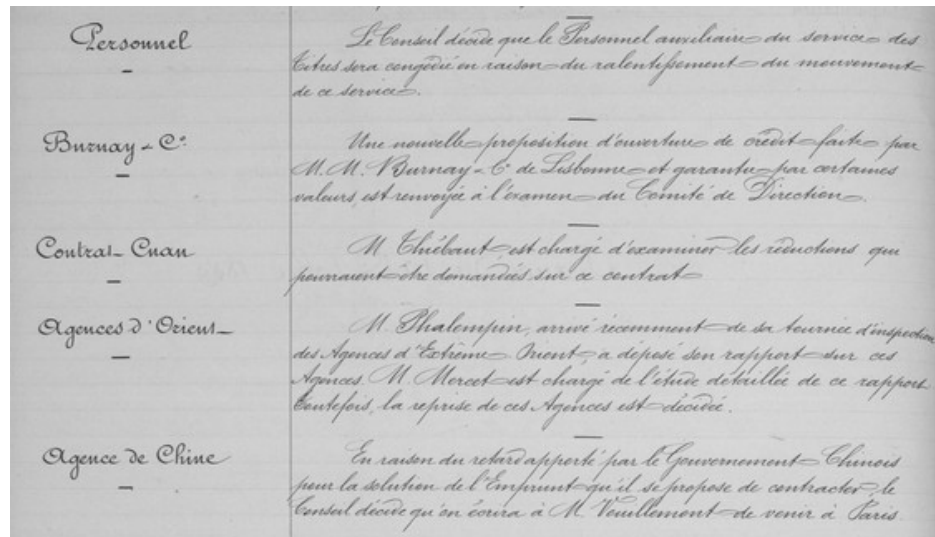 Personnel
Le Conseil décide que le Personnel auxiliaire du service des
Titres sera congédié en raison du ralentissement du mouvement
de ce service.
Burnay & Cº
Une nouvelle proposition d'ouverture de crédit faite par
M.M. Burnay & Cº de Lisbonne et garantie par certaines
valeurs, est renvoyée à l'examen du Comité de Direction.
Contrat Cuan
M. Thiébaut est chargé d'examiner les réductions que
pourraient être demandées sur ce contrat
Agences d'Orient
M. Phalempin, arrivé récemment de sa tournée d'inspection
des Agences d'Extrême Orient, a déposé son rapport sur ces
Agences. M. Mercet est chargé de l'étude détaillée de ce rapport
toutefois, la reprise de ces Agences est décidée.
Agence de Chine
En raison du retard apporté par le Gouvernement Chinois
pour la solution de l'Emprunt qu'il se propose de contracter, le
Conseil décide qu'on écrira à M. Vouillemont de venir à Paris.